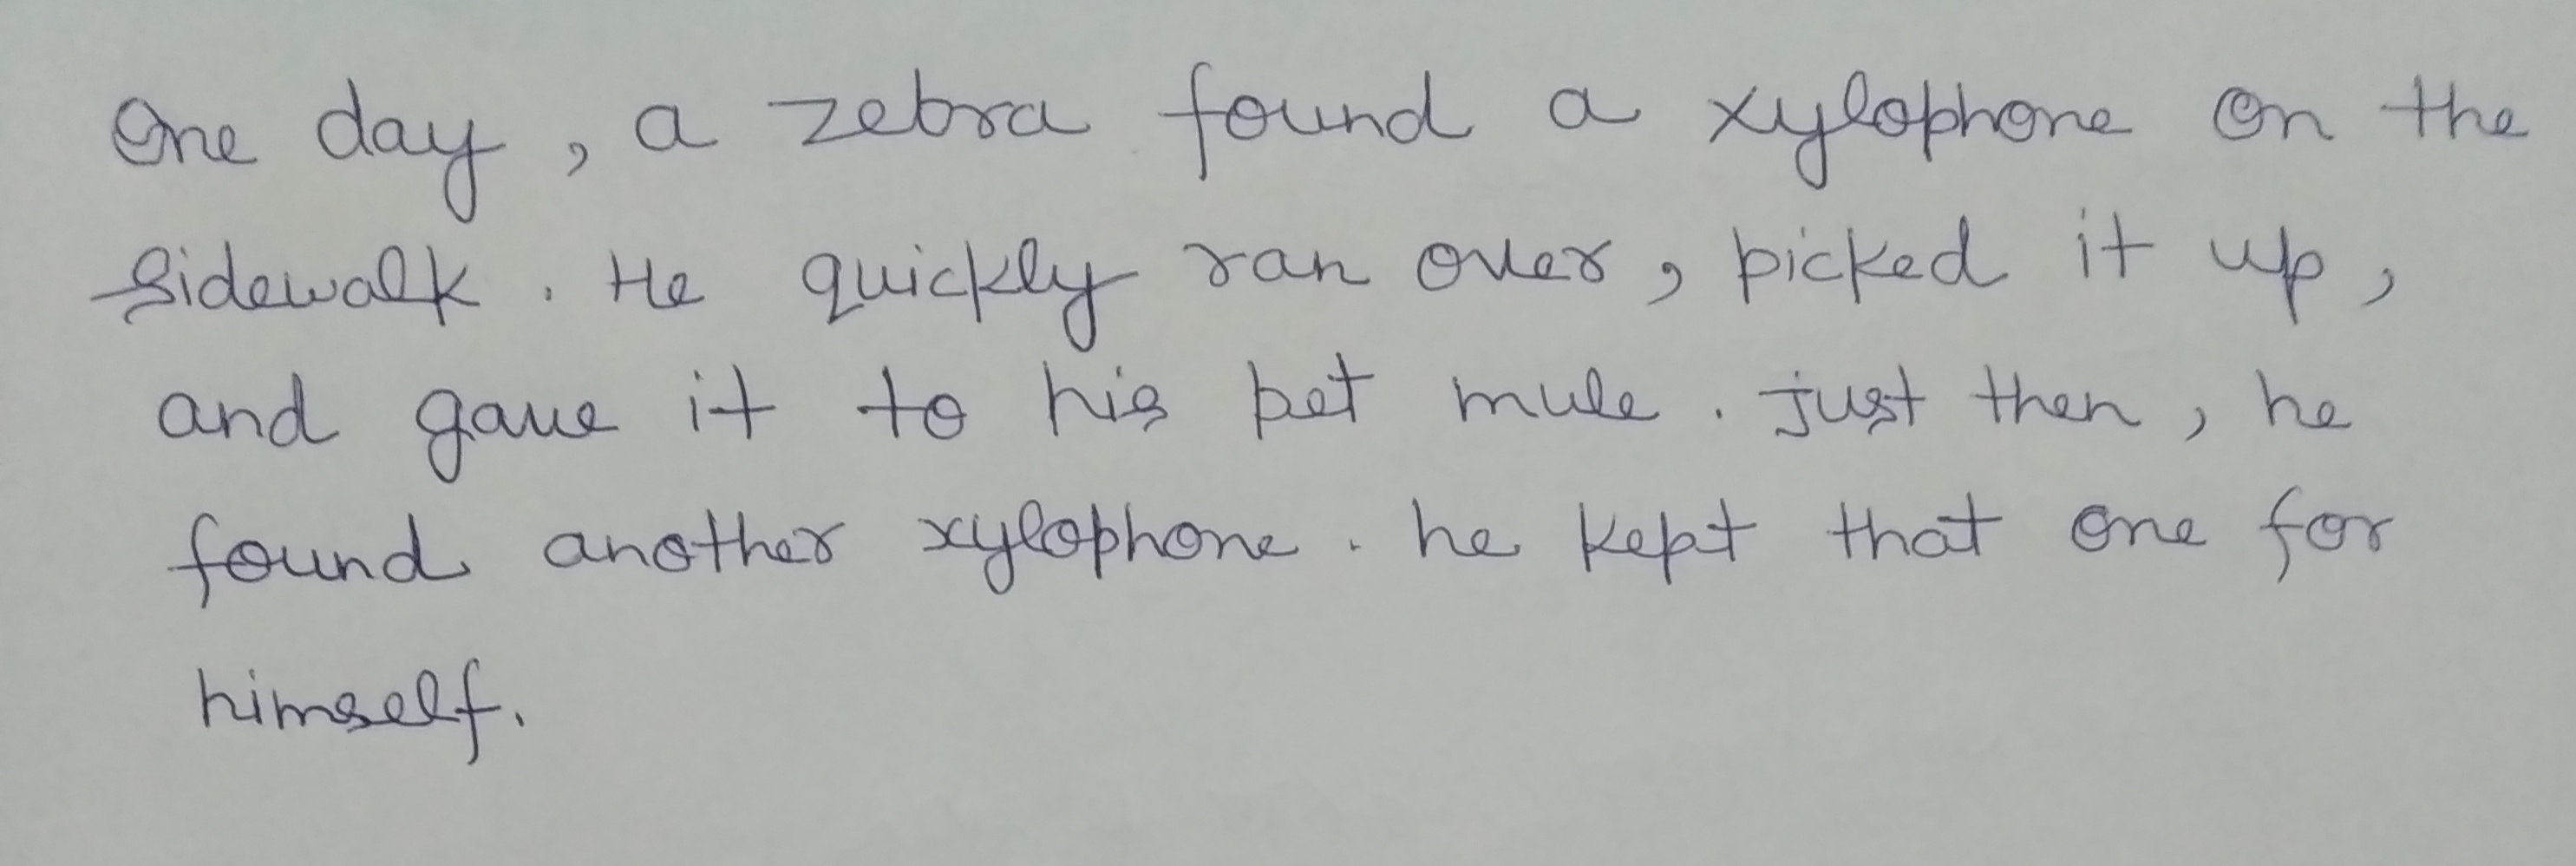 One day, a zebra found a xylophone on the
sidewalk. He quickly ran over, picked it up,
and gave it to his pet mule. Just then, he
found another xylophone. he kept that one for
himself.